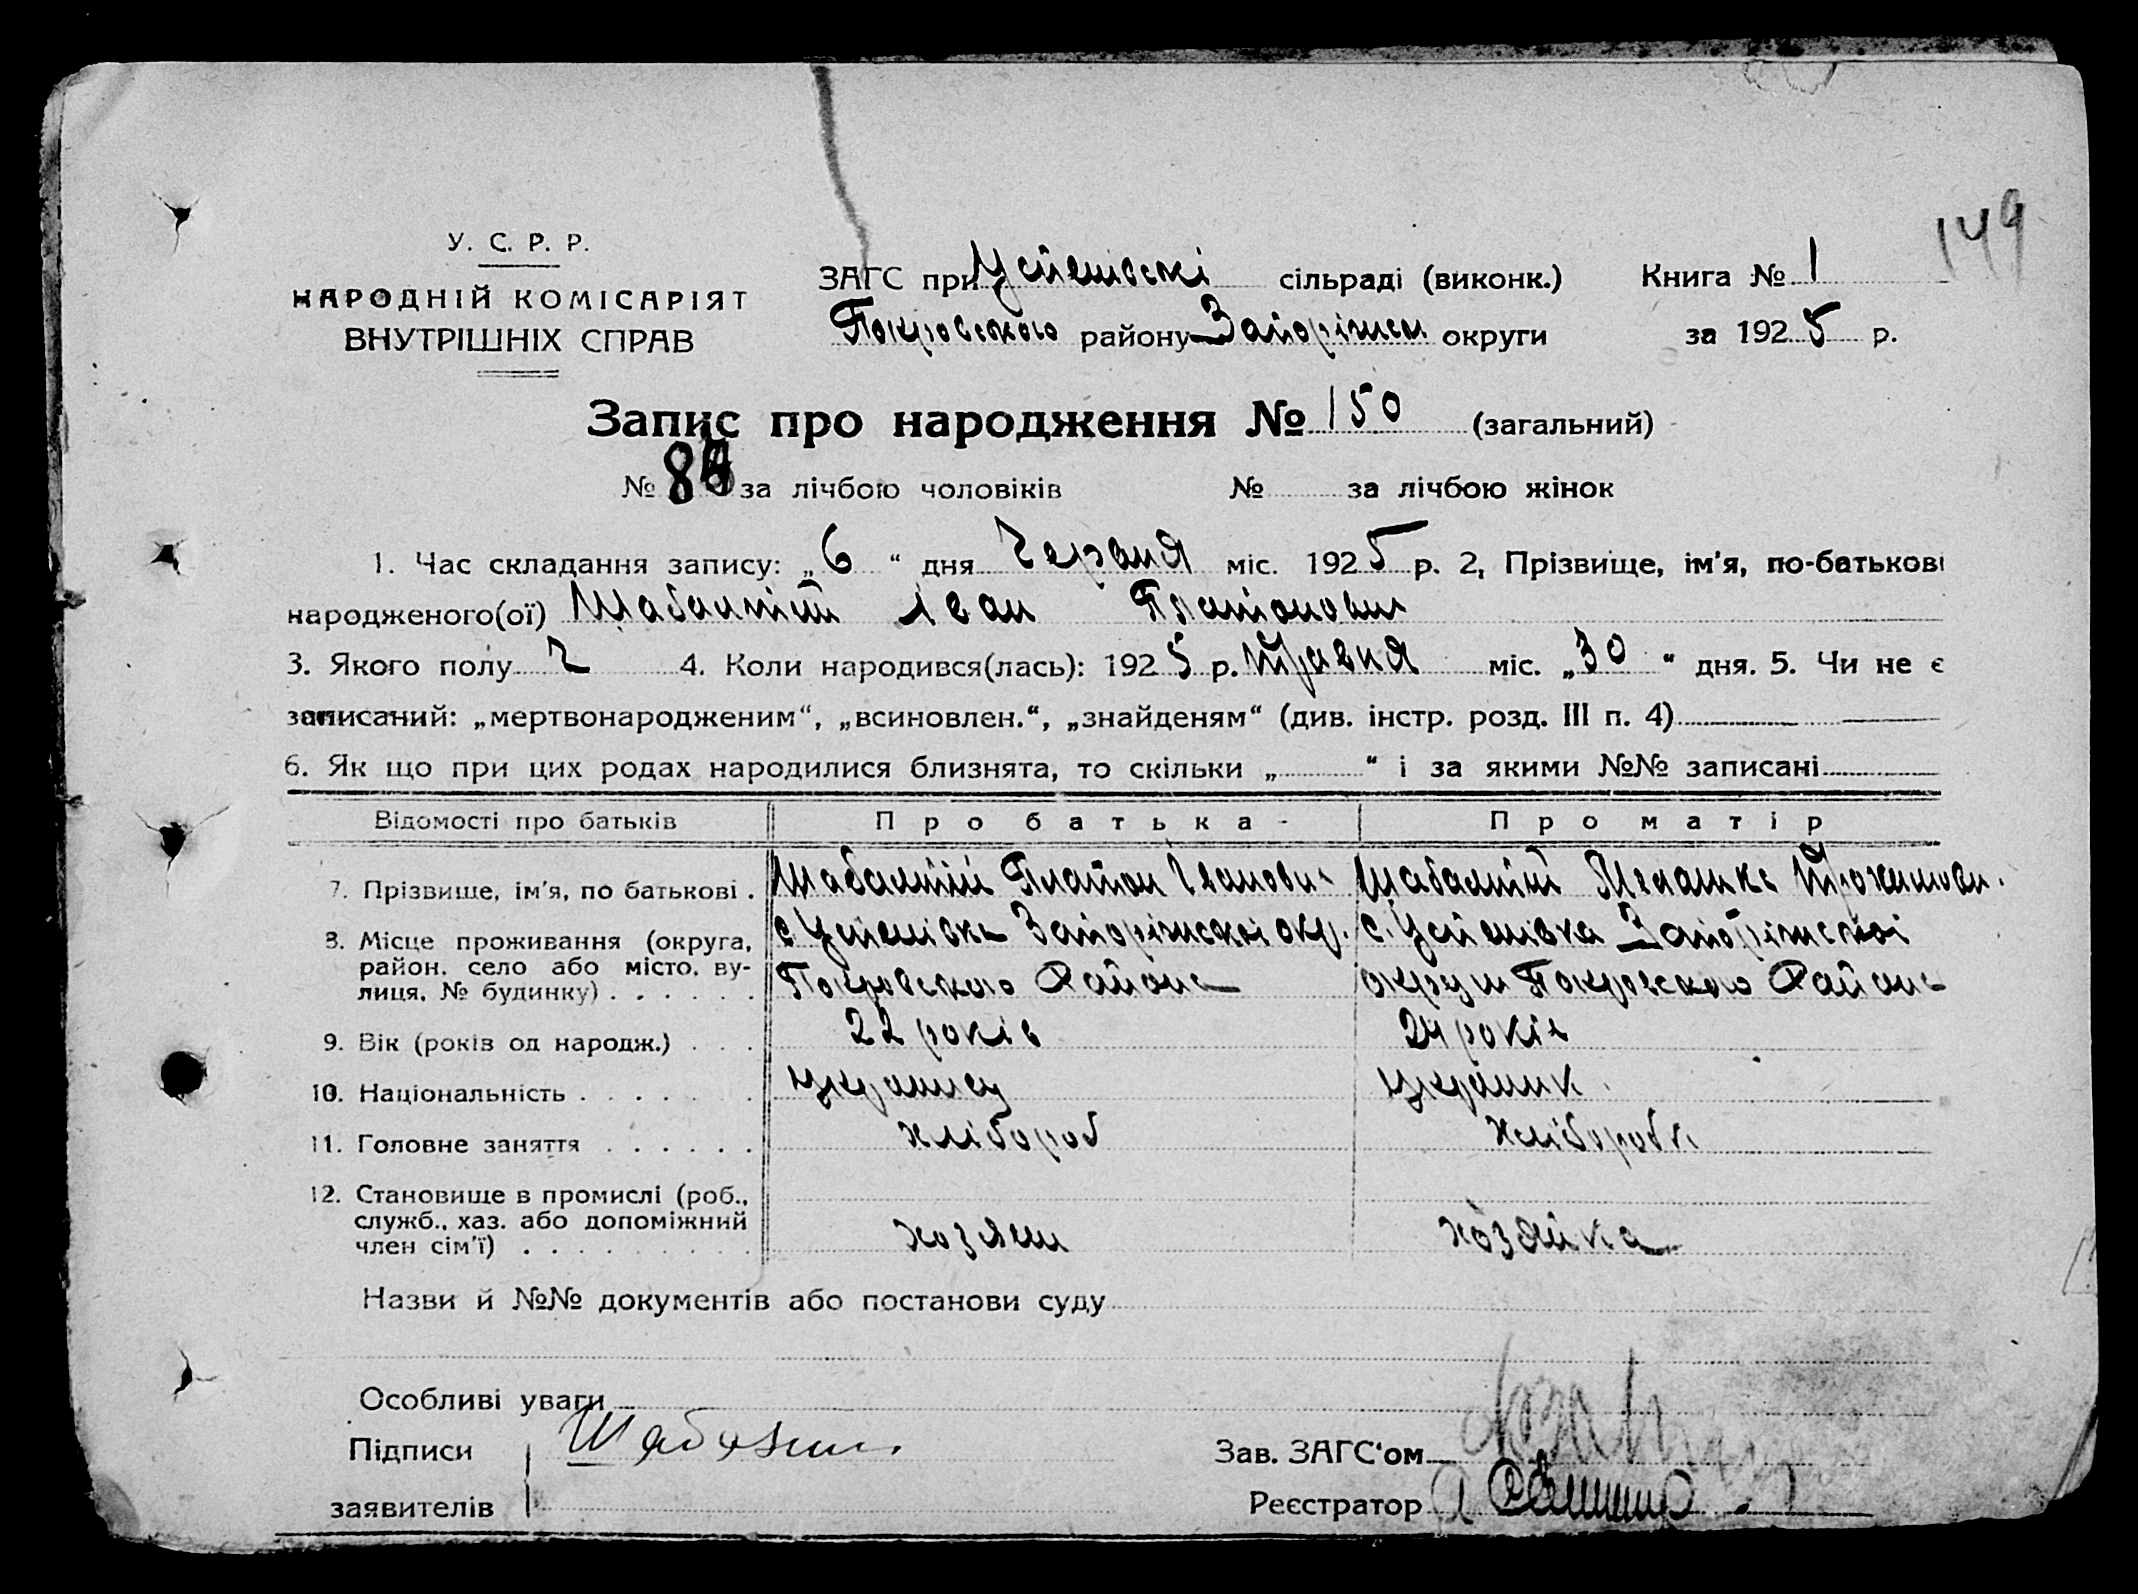 149
У. С. Р. Р.
НАРОДНІЙ КОМІСАРІЯТ
ВНУТРІШНІХ СПРАВ
ЗАГС при Успенівські сільраді (виконк.) Книга № 1
Покровського району Запоріжськ округи за 1925 р.
Запис про народження № 150 (загальний)
№ за лічбою чоловіків № за лічбою жінок
1. Час складання запису: „ 6 “ дня Червня міс. 1925 р. 2, Прізвище, ім'я, по-батькові
народженого(ої) Шабалтій Іван Платонович
3. Якого полу ч 4. Коли народився(лась): 1925 р. Травня міс. „ 30 “ дня. 5. Чи не є
записаний: „мертвонародженим“, „всиновлен.“, „знайденям“ (див. інстр. розд. III п. 4)
6. Як що при цих родах народилися близнята, то скільки „ “ і за якими №№ записані
Відомості про батьків Про батька Про матір
7. Прізвище, ім'я, по батькові . Шабалтій Платон Іванович Шабалтій Меланка
8. Місце проживання (округа, район. село або місто. вулиця. № будинку) . . . . . . с Успенівка Запоріжської окр. с. Успенівка Запоріжської
Покровського Району округи Покровского Району
9. Вік (років од народж.) . . . 22 років 24 років
10. Національність . . . . . . . українец україник
11. Головне заняття . . . . . . хлібороб хліборобк
12. Становище в промислі (роб., служб., хаз. або допоміжний член сім'ї) . . . . . . . . . хозяин хозяйка
Назви й №№ документів або постанови суду
Особливі уваги
Підписи
заявителів
Зав. ЗАГС'ом
Реєстратор